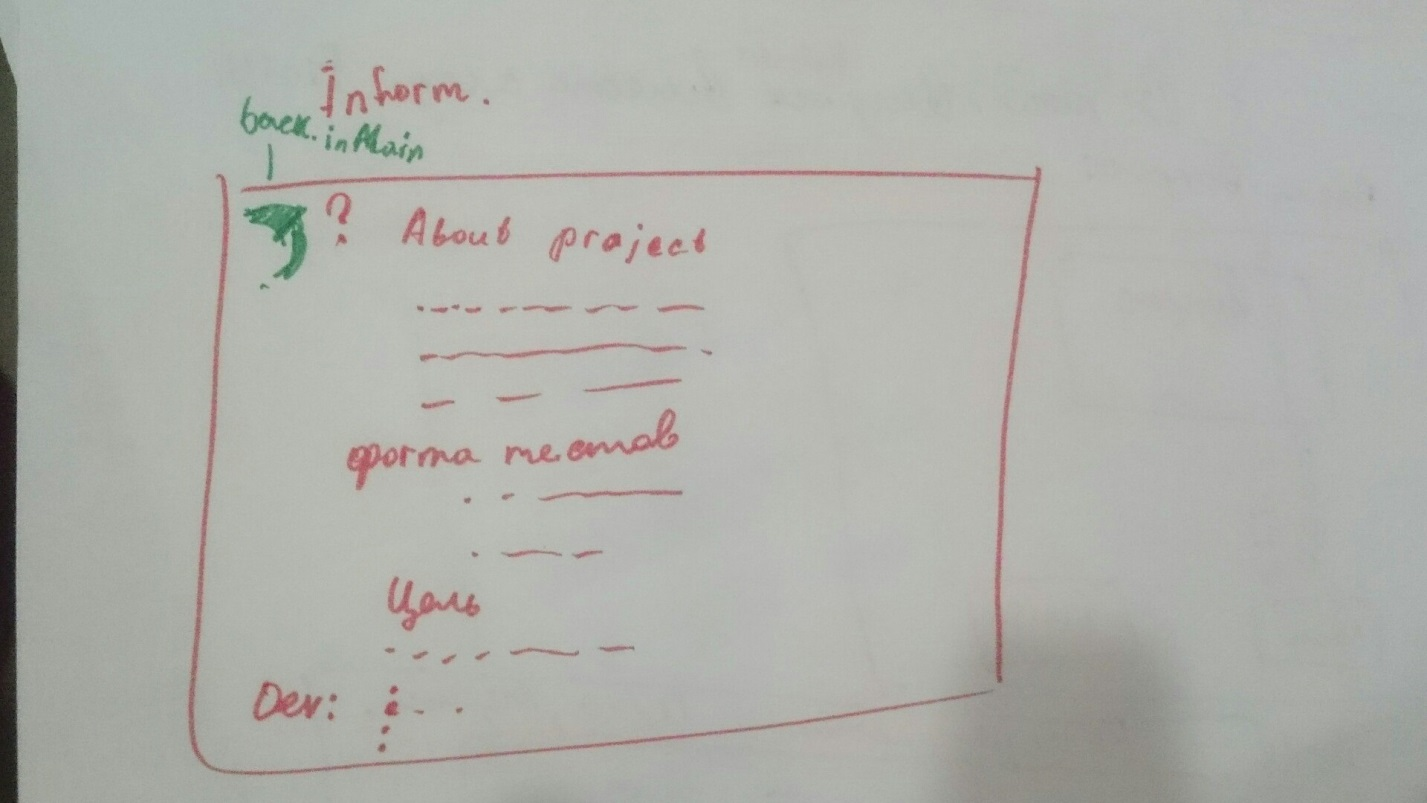 Inform.
back. in Main
? About project
форма тестов
Цель
Dev: